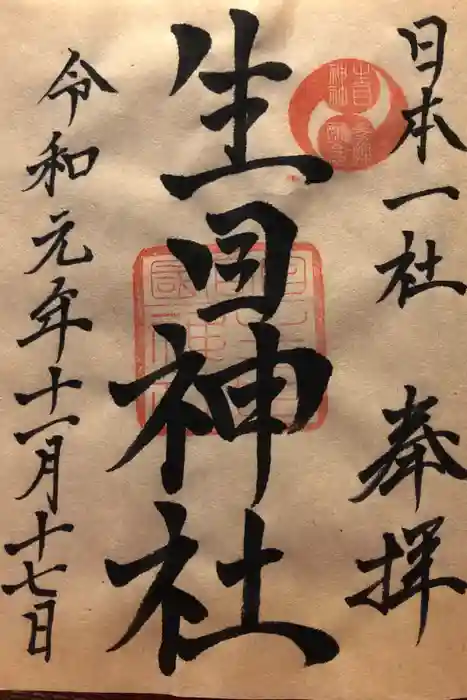 日本一社 奉拝
生目神社
令和元年十一月十七日